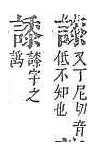 又丁尼切音
低不知也
字之
譌